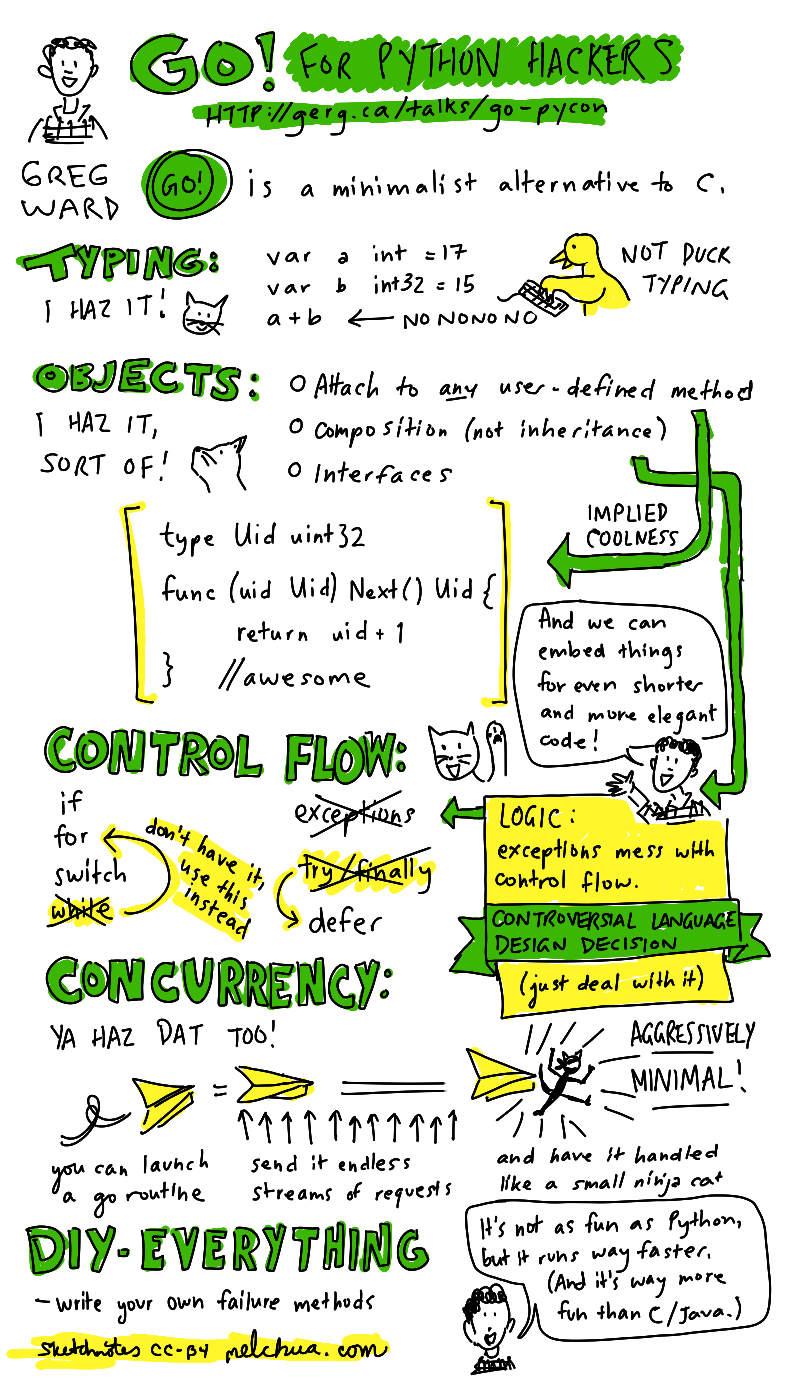 GO! FOR PYTHON HACKERS
HTTP://gerg.ca/talks/go-pycon
GREG
WARD
GO! is a minimalist alternative to C.
TYPING:
I HAZ IT!
var a int = 17
var b int32 = 15
a + b ← NO NO NO NO
NOT DUCK
TYPING
OBJECTS:
I HAZ IT,
SORT OF!
O Attach to any user-defined method
O Composition (not inheritance)
O Interfaces
IMPLIED
COOLNESS
type Uid uint32
func (uid Uid) Next() Uid {
return uid + 1
} //awesome
And we can
embed things
for even shorter
and more elegant
code!
CONTROL FLOW:
if
for
switch
while
don't have it,
use this
instead
exceptions
try/finally
defer
LOGIC:
exceptions mess with
control flow.
CONTROVERSIAL LANGUAGE
DESIGN DECISION
(just deal with it)
CONCURRENCY:
YA HAZ DAT TOO!
AGGRESSIVELY
MINIMAL!
=
you can launch
a go routine
send it endless
streams of requests
and have it handled
like a small ninja cat
DIY-EVERYTHING
- write your own failure methods
It's not as fun as Python,
but it runs way faster.
(And it's way more
fun than C/Java.)
sketchnotes CC-BY melchua.com